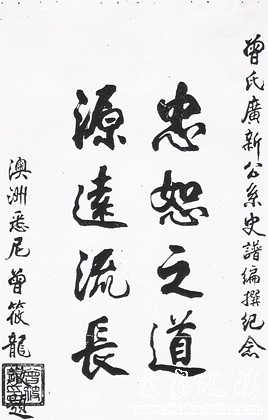 曾氏廣新公系史譜編撰紀念
忠恕之道
源遠流長
澳洲悉尼曾筱龍